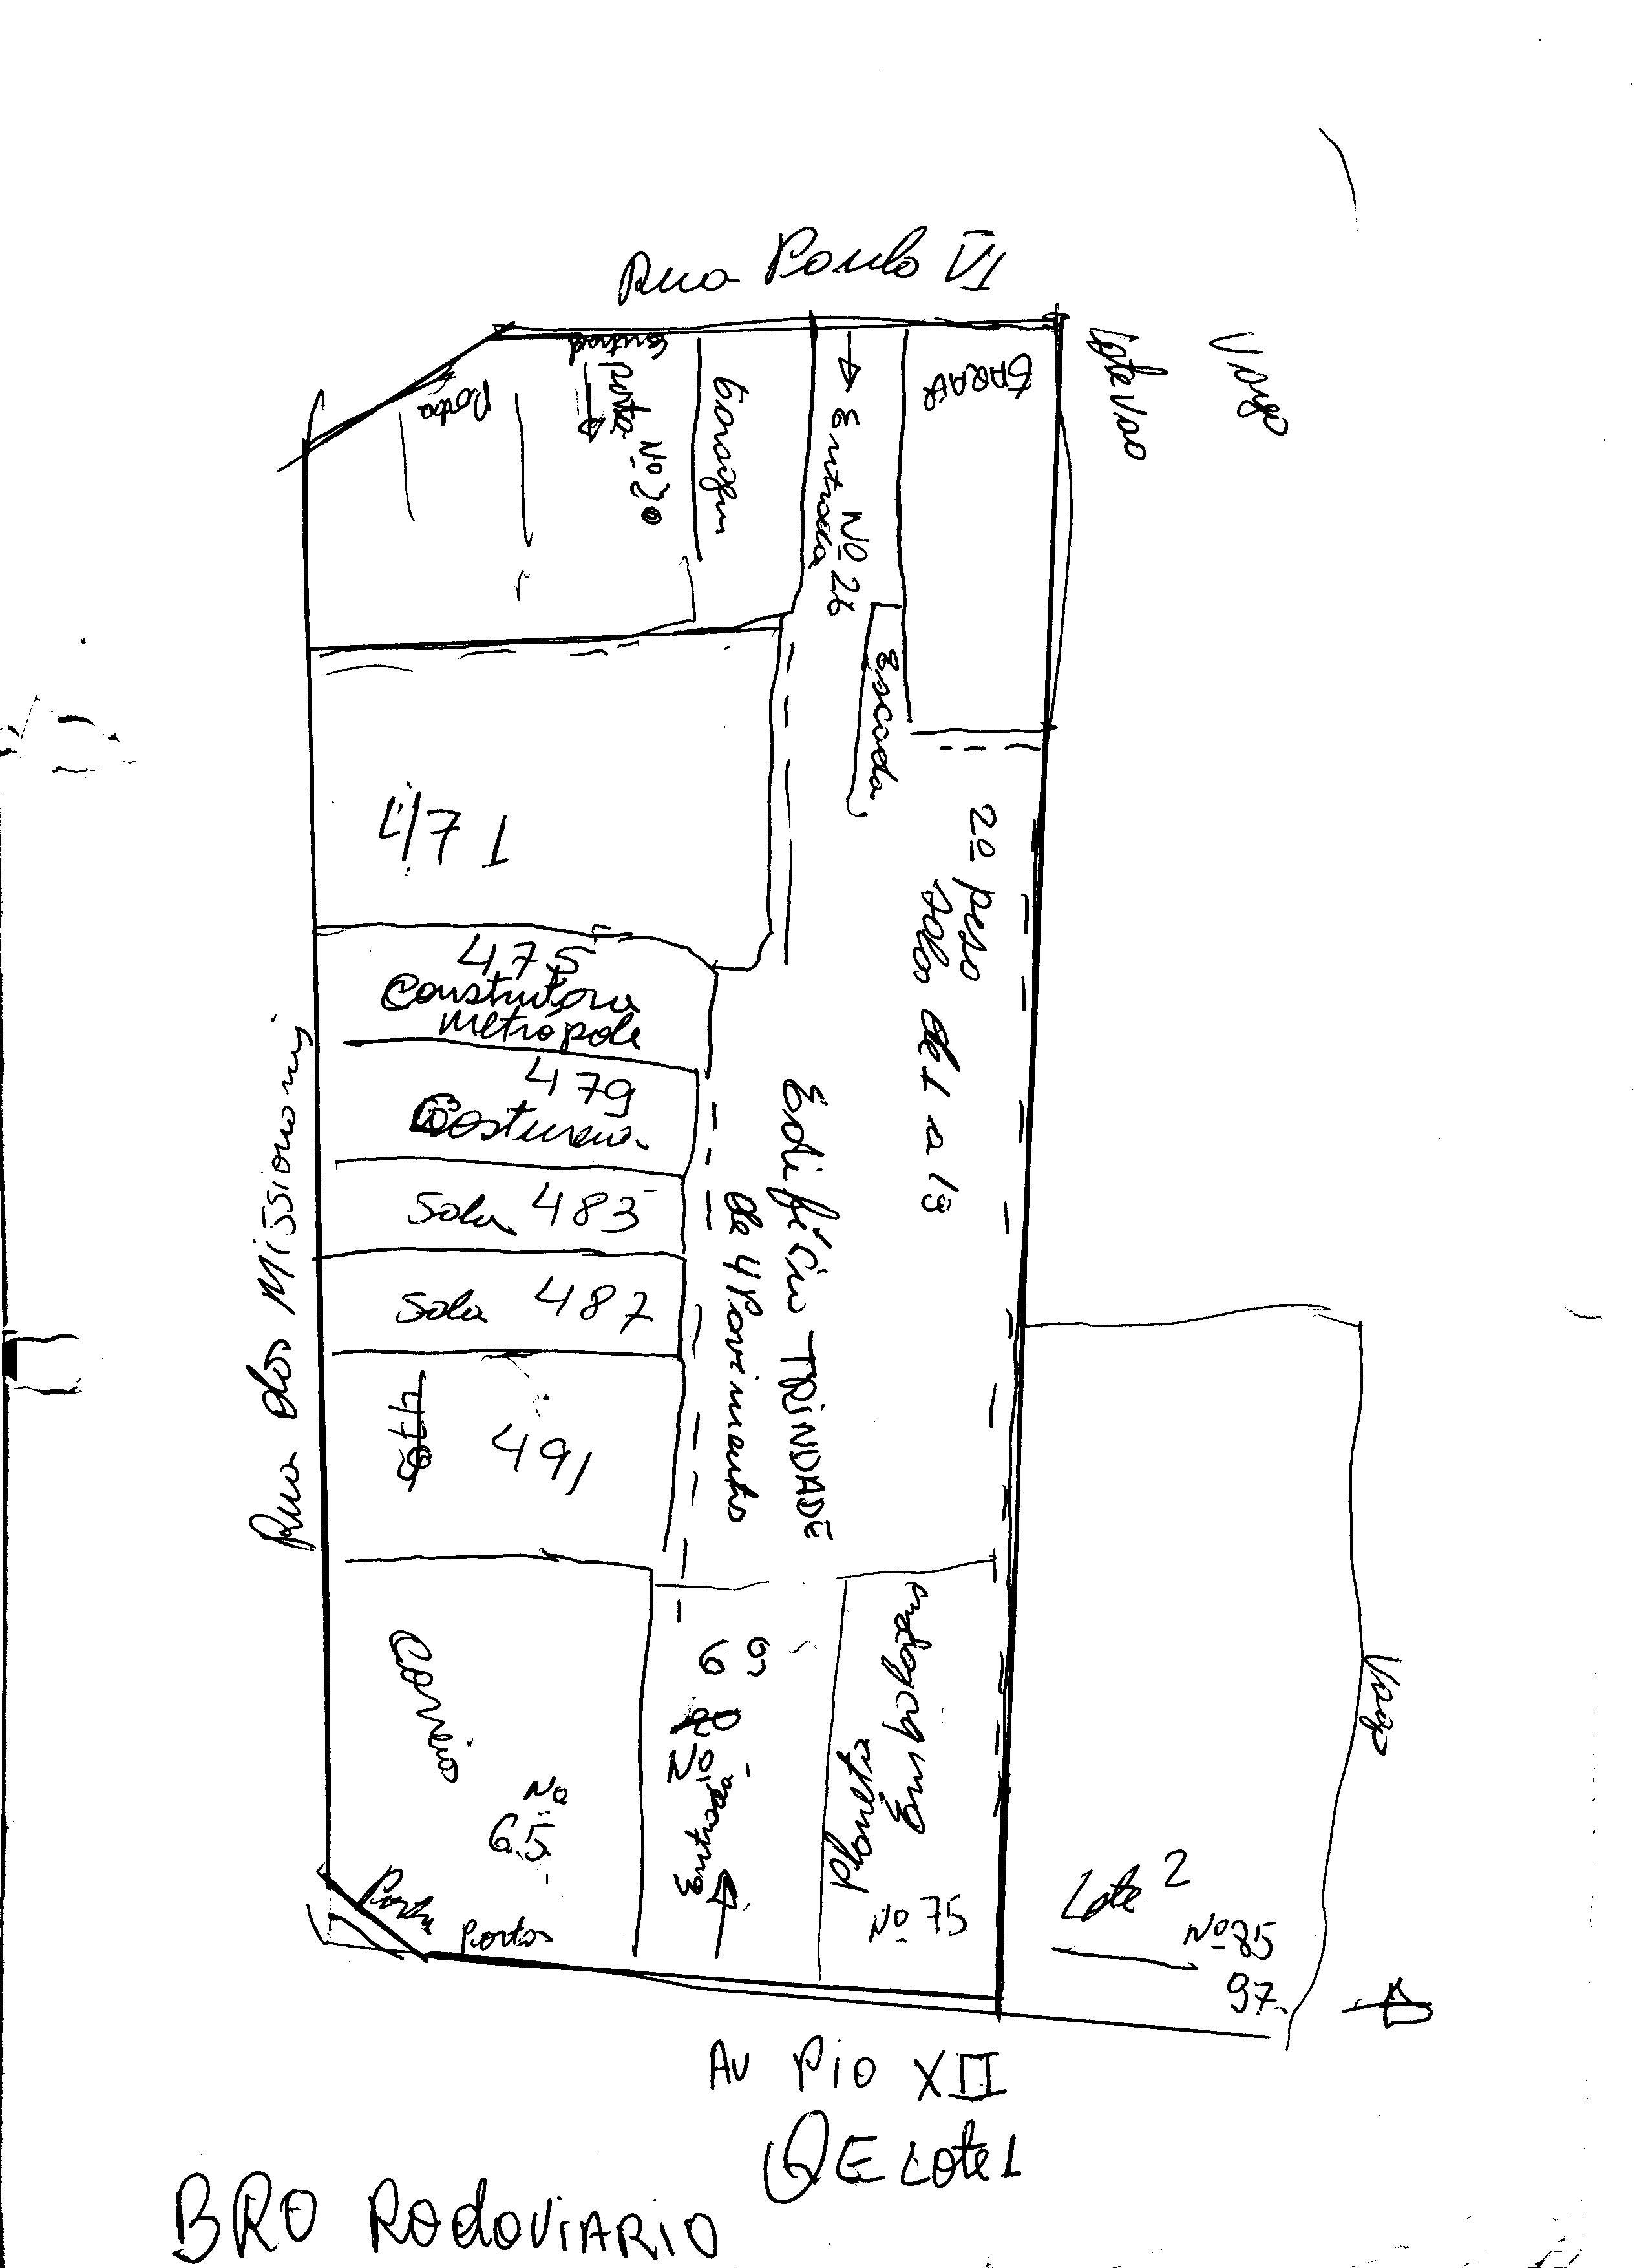 Rua Paulo VI
Vago
Lote Vao
Porta
Entrad
porta
Nº 30
Garagem
Entrada
Nº 26
GARAG
Escada
471
2º peso
salas de 1 a 13
475
Construtora
metrópole
479
Costureira
Sala 483
Sala 487
491
Rua dos Missionarios
Edifício TRINDADE
de 4 Pavimentos
Correio
Nº
65
Porta
Portas
69
Nº
Entrada
Planeta
Embalagens
Nº 75
Lote 2
Nº 85
97
Vago
Av Pio XII
QE Lote 1
BRO RODOVIARIO